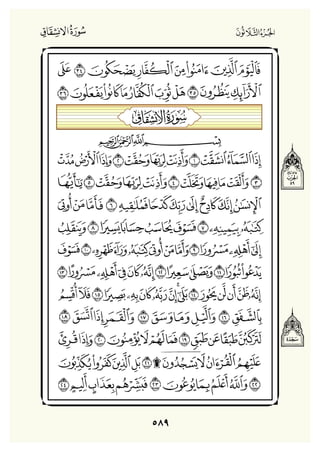 الجُزْءُ الثَّلَاثُونَ
سُورَةُ الانشِقَاقِ
فَٱلْيَوْمَ ٱلَّذِينَ ءَامَنُوا۟ مِنَ ٱلْكُفَّارِ يَضْحَكُونَ ٣٤ عَلَى
ٱلْأَرَآئِكِ يَنظُرُونَ ٣٥ هَلْ ثُوِّبَ ٱلْكُفَّارُ مَا كَانُوا۟ يَفْعَلُونَ ٣٦
سُورَةُ الانشِقَاقِ
بِسْمِ ٱللَّهِ ٱلرَّحْمَٰنِ ٱلرَّحِيمِ
إِذَا ٱلسَّمَآءُ ٱنشَقَّتْ ١ وَأَذِنَتْ لِرَبِّهَا وَحُقَّتْ ٢ وَإِذَا ٱلْأَرْضُ مُدَّتْ
٣ وَأَلْقَتْ مَا فِيهَا وَتَخَلَّتْ ٤ وَأَذِنَتْ لِرَبِّهَا وَحُقَّتْ ٥ يَٰٓأَيُّهَا
ٱلْإِنسَٰنُ إِنَّكَ كَادِحٌ إِلَىٰ رَبِّكَ كَدْحًا فَمُلَٰقِيهِ ٦ فَأَمَّا مَنْ أُوتِىَ
كِتَٰبَهُۥ بِيَمِينِهِۦ ٧ فَسَوْفَ يُحَاسَبُ حِسَابًا يَسِيرًا ٨ وَيَنقَلِبُ
إِلَىٰٓ أَهْلِهِۦ مَسْرُورًا ٩ وَأَمَّا مَنْ أُوتِىَ كِتَٰبَهُۥ وَرَآءَ ظَهْرِهِۦ ١٠ فَسَوْفَ
يَدْعُوا۟ ثُبُورًا ١١ وَيَصْلَىٰ سَعِيرًا ١٢ إِنَّهُۥ كَانَ فِىٓ أَهْلِهِۦ مَسْرُورًا ١٣
إِنَّهُۥ ظَنَّ أَن لَّن يَحُورَ ١٤ بَلَىٰٓ إِنَّ رَبَّهُۥ كَانَ بِهِۦ بَصِيرًا ١٥ فَلَآ أُقْسِمُ
بِٱلشَّفَقِ ١٦ وَٱلَّيْلِ وَمَا وَسَقَ ١٧ وَٱلْقَمَرِ إِذَا ٱتَّسَقَ ١٨
لَتَرْكَبُنَّ طَبَقًا عَن طَبَقٍ ١٩ فَمَا لَهُمْ لَا يُؤْمِنُونَ ٢٠ وَإِذَا قُرِئَ
عَلَيْهِمُ ٱلْقُرْءَانُ لَا يَسْجُدُونَ ۩ ٢١ بَلِ ٱلَّذِينَ كَفَرُوا۟ يُكَذِّبُونَ
٢٢ وَٱللَّهُ أَعْلَمُ بِمَا يُوعُونَ ٢٣ فَبَشِّرْهُم بِعَذَابٍ أَلِيمٍ ٢٤
سجدة
٥٨٩